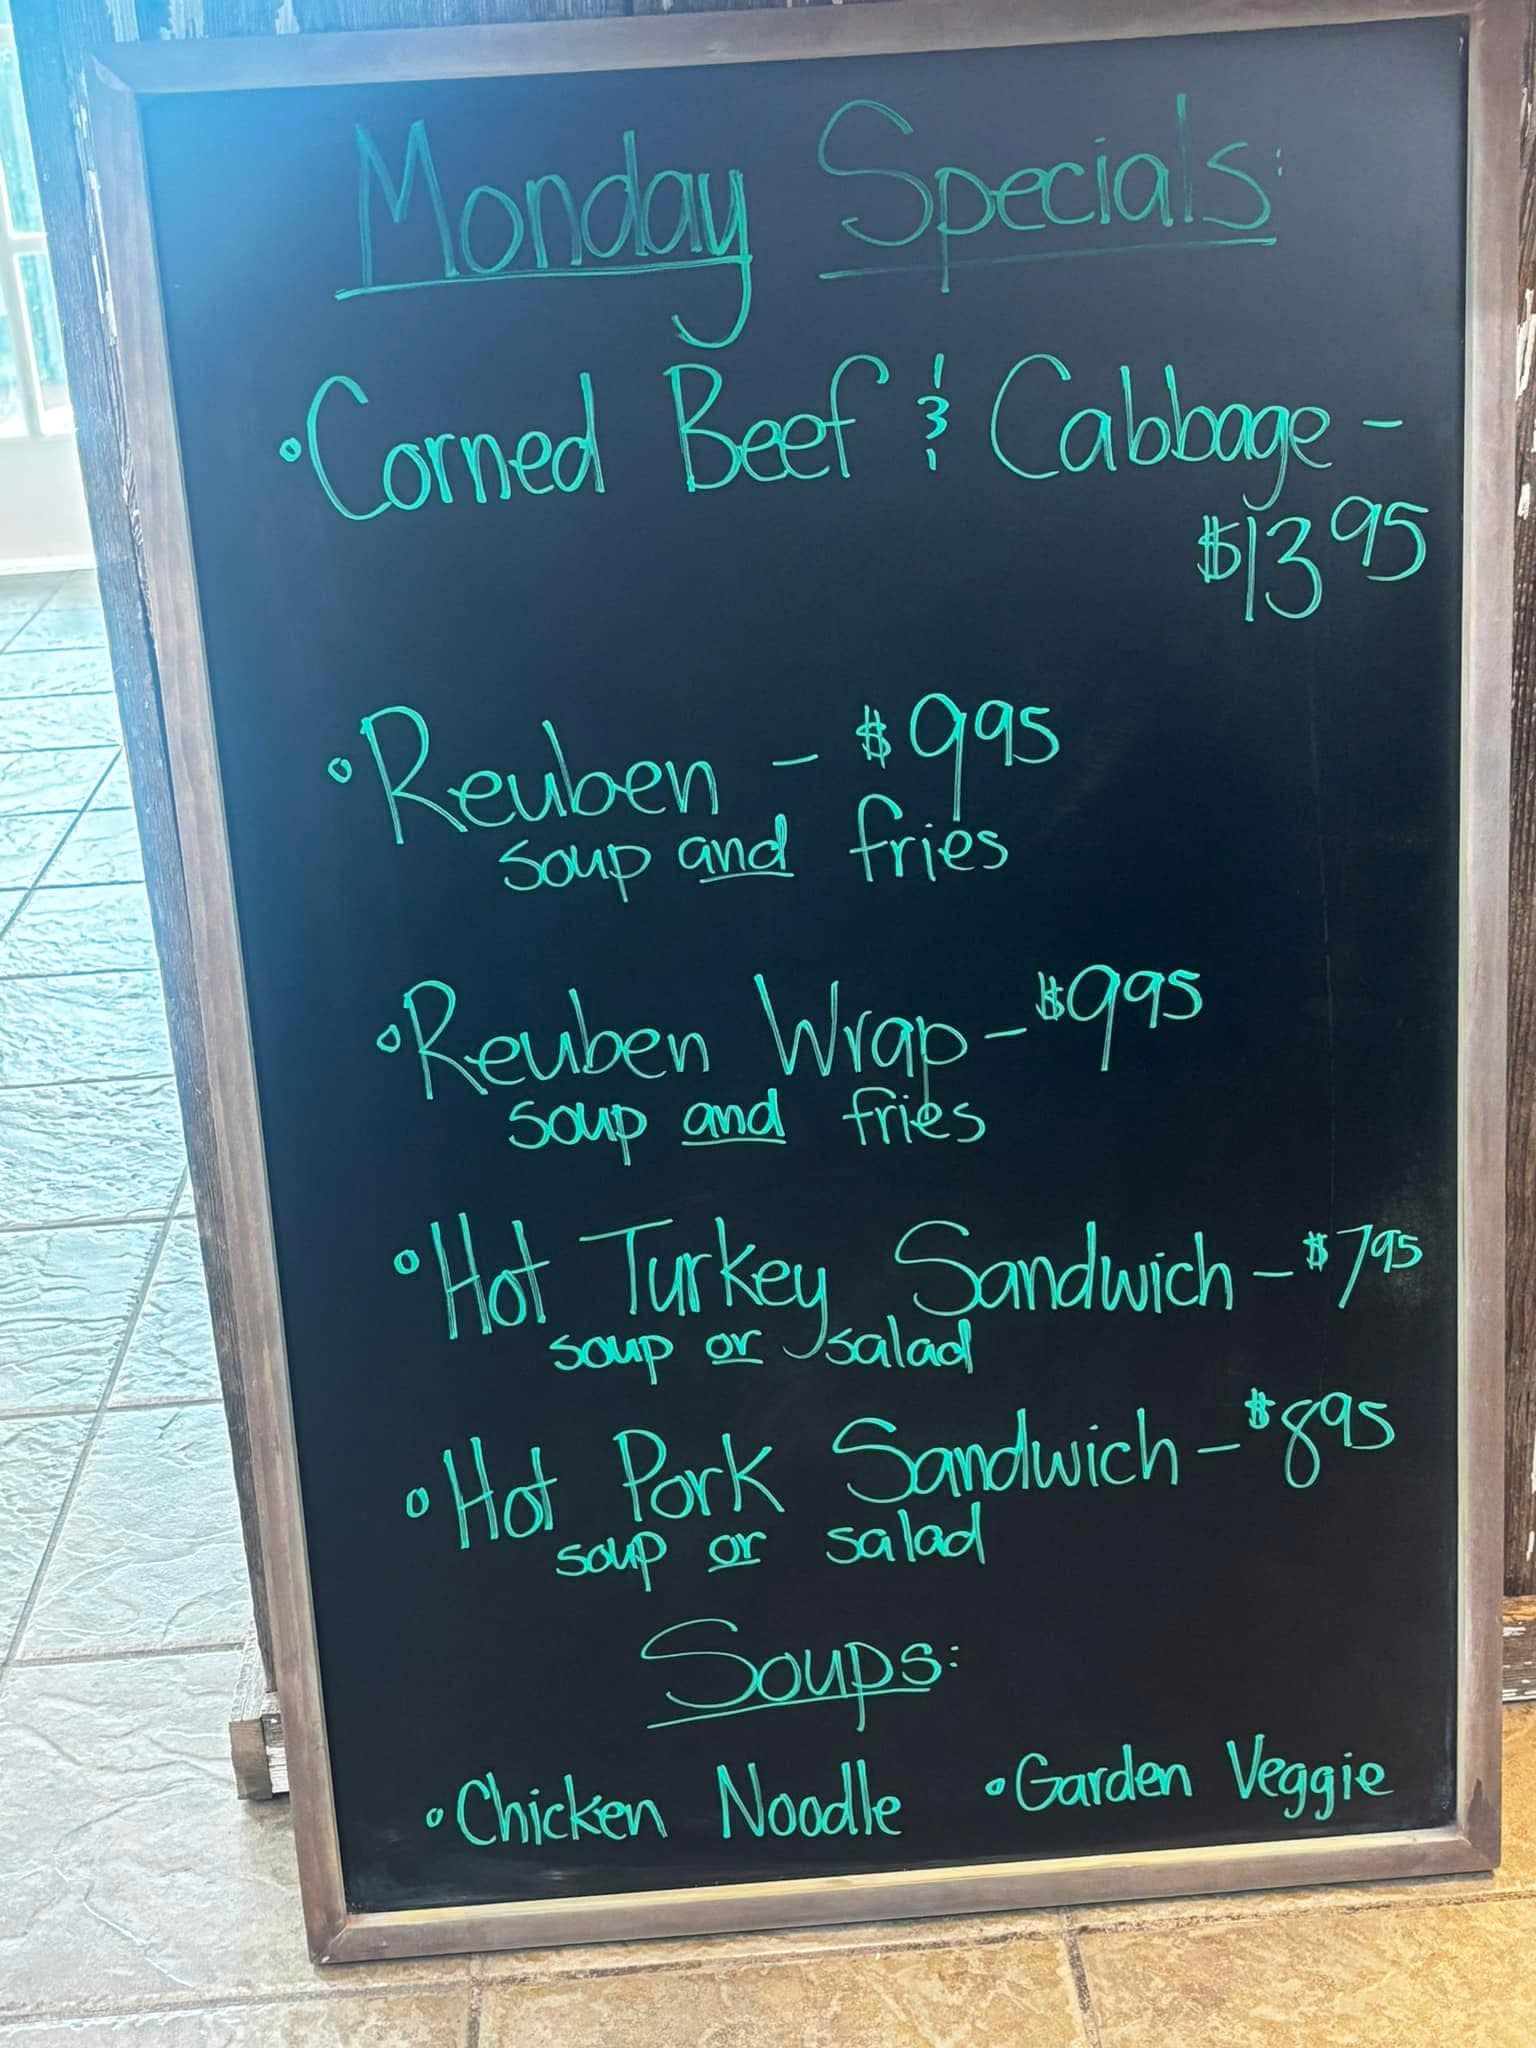 Monday Specials:
• Corned Beef & Cabbage -
$13 95
• Reuben - $9 95
soup and fries
• Reuben Wrap - $9 95
soup and fries
• Hot Turkey Sandwich - $7 95
soup or salad
• Hot Pork Sandwich - $8 95
soup or salad
Soups:
• Chicken Noodle • Garden Veggie